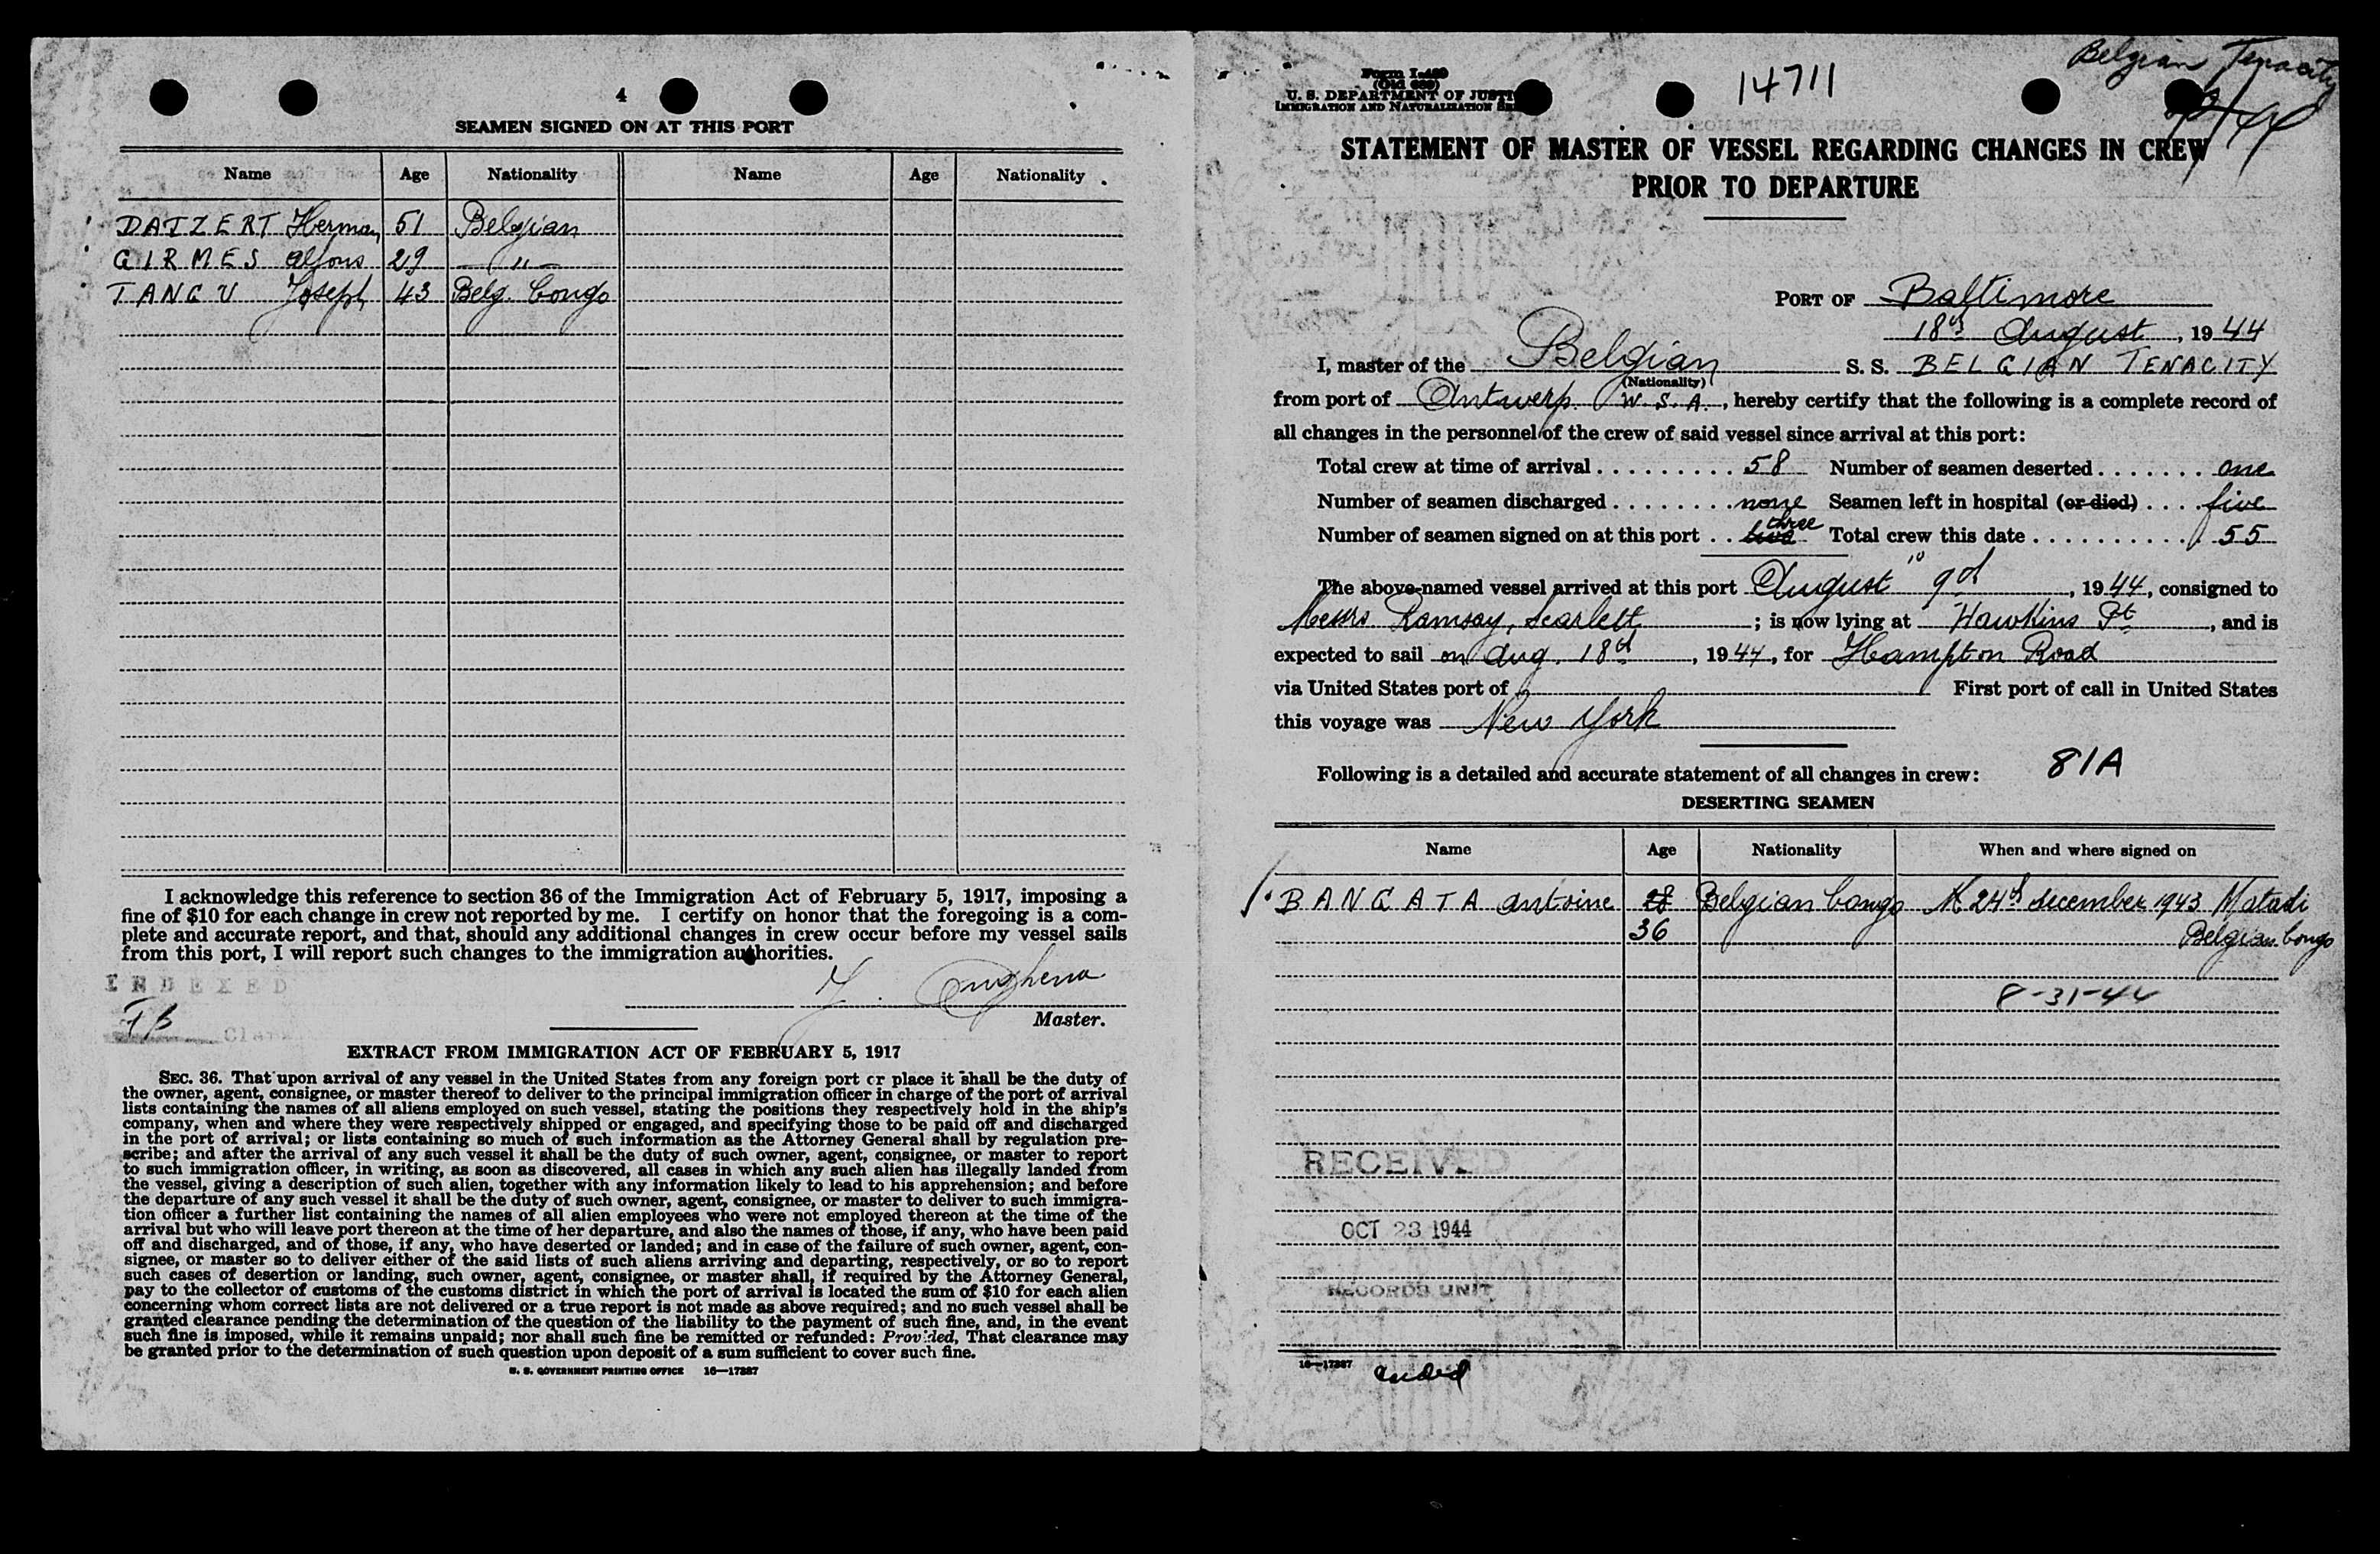 4
SEAMEN SIGNED ON AT THIS PORT
Name Age Nationality Name Age Nationality
DATZERT Herman 51 Belgian
GIRMES Alfons 29 — " —
TANGU Joseph 43 Belg. Congo
I acknowledge this reference to section 36 of the Immigration Act of February 5, 1917, imposing a
fine of $10 for each change in crew not reported by me. I certify on honor that the foregoing is a com-
plete and accurate report, and that, should any additional changes in crew occur before my vessel sails
from this port, I will report such changes to the immigration authorities.
INDEXED
Master.
EXTRACT FROM IMMIGRATION ACT OF FEBRUARY 5, 1917
SEC. 36. That upon arrival of any vessel in the United States from any foreign port or place it shall be the duty of
the owner, agent, consignee, or master thereof to deliver to the principal immigration officer in charge of the port of arrival
lists containing the names of all aliens employed on such vessel, stating the positions they respectively hold in the ship's
company, when and where they were respectively shipped or engaged, and specifying those to be paid off and discharged
in the port of arrival; or lists containing so much of such information as the Attorney General shall by regulation pre-
scribe; and after the arrival of any such vessel it shall be the duty of such owner, agent, consignee, or master to report
to such immigration officer, in writing, as soon as discovered, all cases in which any such alien has illegally landed from
the vessel, giving a description of such alien, together with any information likely to lead to his apprehension; and before
the departure of any such vessel it shall be the duty of such owner, agent, consignee, or master to deliver to such immigra-
tion officer a further list containing the names of all alien employees who were not employed thereon at the time of the
arrival but who will leave port thereon at the time of her departure, and also the names of those, if any, who have been paid
off and discharged, and of those, if any, who have deserted or landed; and in case of the failure of such owner, agent, con-
signee, or master so to deliver either of the said lists of such aliens arriving and departing, respectively, or so to report
such cases of desertion or landing, such owner, agent, consignee, or master shall, if required by the Attorney General,
pay to the collector of customs of the customs district in which the port of arrival is located the sum of $10 for each alien
concerning whom correct lists are not delivered or a true report is not made as above required; and no such vessel shall be
granted clearance pending the determination of the question of the liability to the payment of such fine, and, in the event
such fine is imposed, while it remains unpaid; nor shall such fine be remitted or refunded: Provided, That clearance may
be granted prior to the determination of such question upon deposit of a sum sufficient to cover such fine.
U. S. GOVERNMENT PRINTING OFFICE 16—17287
Belgian Tenacity
Form I-489
(Old 689)
U. S. DEPARTMENT OF JUSTI
IMMIGRATION AND NATURALIZATION SE
14711
STATEMENT OF MASTER OF VESSEL REGARDING CHANGES IN CREW
PRIOR TO DEPARTURE
PORT OF Baltimore
18th August, 1944
I, master of the Belgian S. S. BELGIAN TENACITY
(Nationality)
from port of Antwerp. W.S.A., hereby certify that the following is a complete record of
all changes in the personnel of the crew of said vessel since arrival at this port:
Total crew at time of arrival . . . . . . . . . . 58 Number of seamen deserted . . . . . . . one
Number of seamen discharged . . . . . . . . none Seamen left in hospital (or died) . . . . five
Number of seamen signed on at this port . . three Total crew this date . . . . . . . . . . . 55
The above-named vessel arrived at this port August 9d, 1944, consigned to
Messrs Ramsay, Scarlett; is now lying at Hawkins Pt, and is
expected to sail on Aug. 18d, 1944, for Hampton Road
via United States port of First port of call in United States
this voyage was New York
Following is a detailed and accurate statement of all changes in crew: 81A
DESERTING SEAMEN
Name Age Nationality When and where signed on
1. BANGATA Antoine Belgian Congo 24th december 1943 Matadi
36 Belgian Congo
8-31-44
RECEIVED
OCT 23 1944
RECORDS UNIT
16—17287